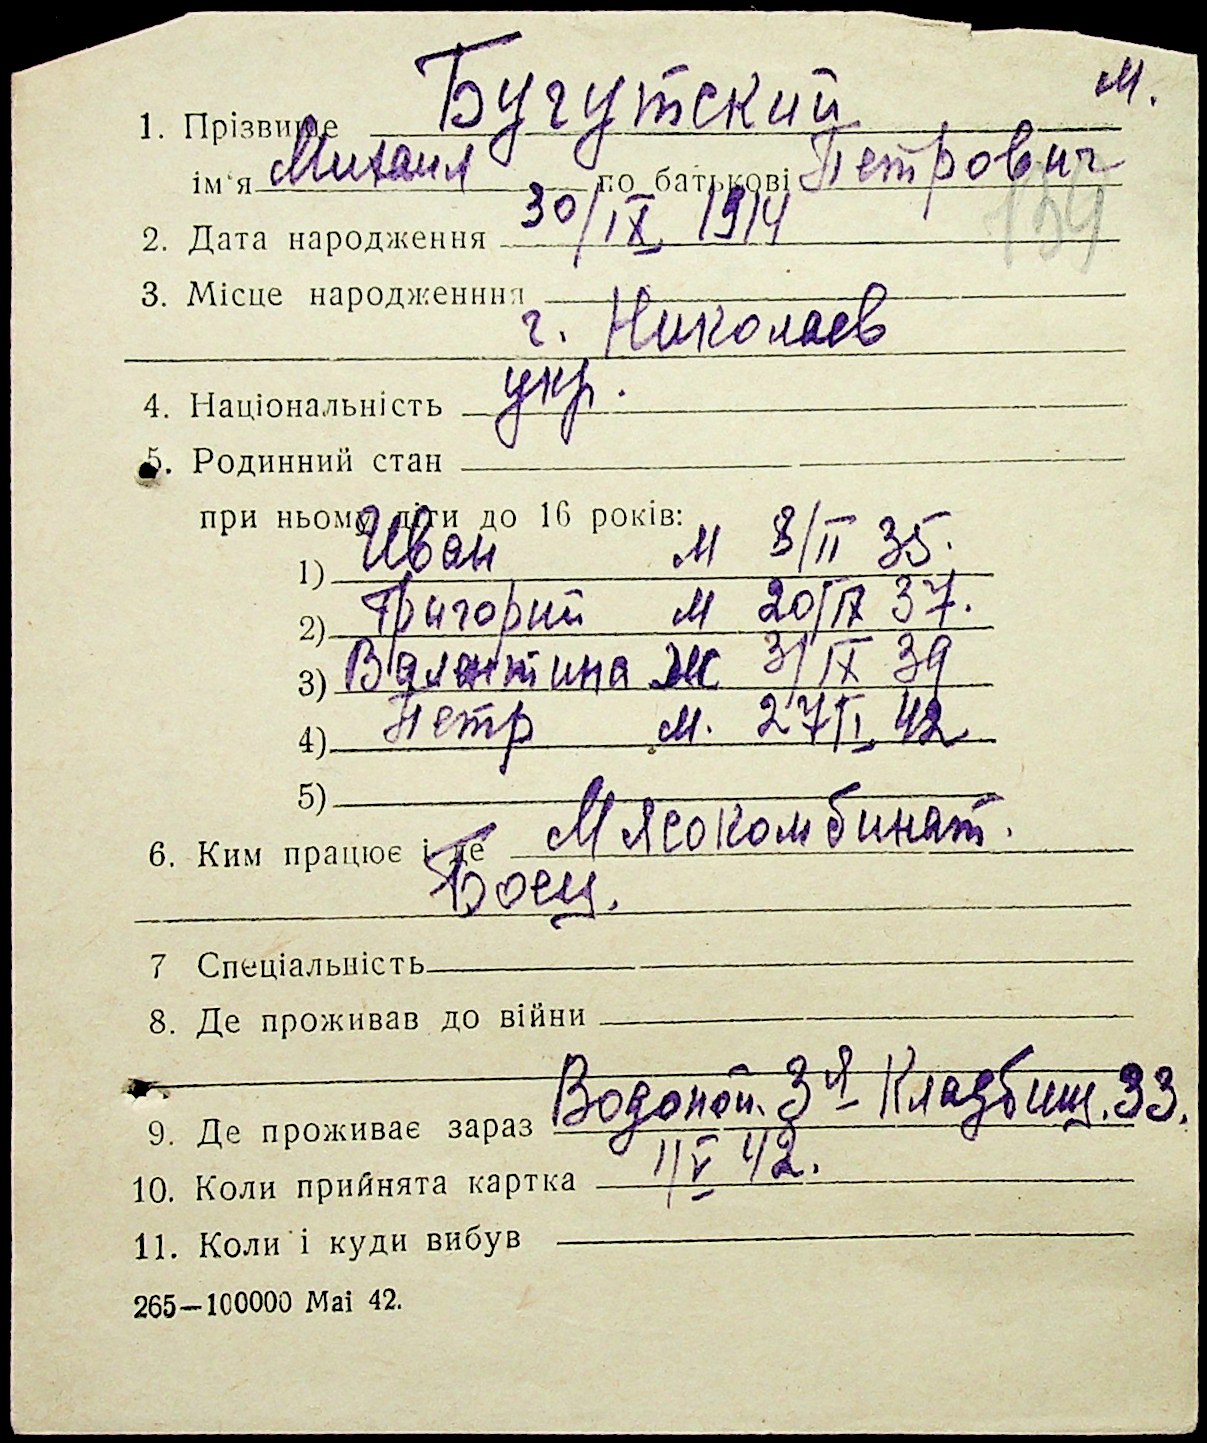 м.
1. Прізвище Бугутский
ім'я Михаил по батькові Петрович
139
2. Дата народження 30/IX 1914
3. Місце народженння
г. Николаев
4. Національність укр.
5. Родинний стан
при ньому діти до 16 років:
1) Иван м 8/II 35.
2) Григорий м 20/IX 37.
3) Валентина Ж 31/IX 39
4) Петр м. 27/I 42
5)
6. Ким працює і де Мясокомбинат.
Боец.
7 Спеціальність
8. Де проживав до війни
9. Де проживає зараз Водопой. 3я Кладбищ. 33.
10. Коли прийнята картка 1/V 42.
11. Коли і куди вибув
265—100000 Mai 42.